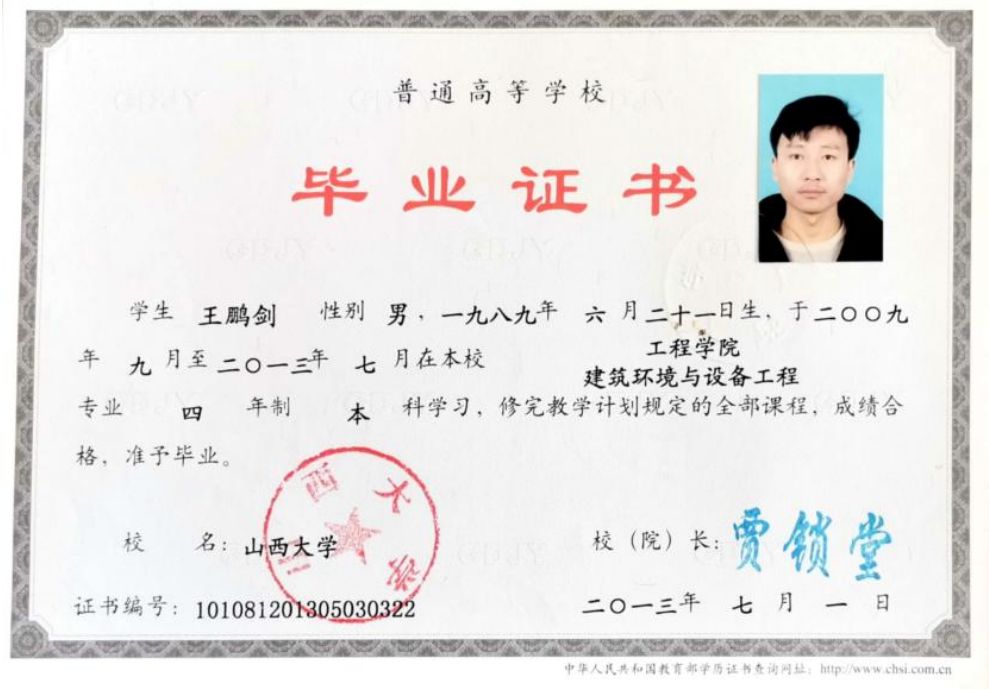 普通高等学校
毕业证书
学生 王鹏剑 性别 男，一九八九年 六 月二十一日生，于二〇〇九
年 九 月至二〇一三年 七 月在本校 工程学院
建筑环境与设备工程
专业 四 年制 本 科学习，修完教学计划规定的全部课程，成绩合
格，准予毕业。
山西大学
校 名：山西大学
校（院）长：贾锁堂
证书编号：101081201305030322
二〇一三年 七 月 一 日
中华人民共和国教育部学历证书查询网址：http://www.chsi.com.cn